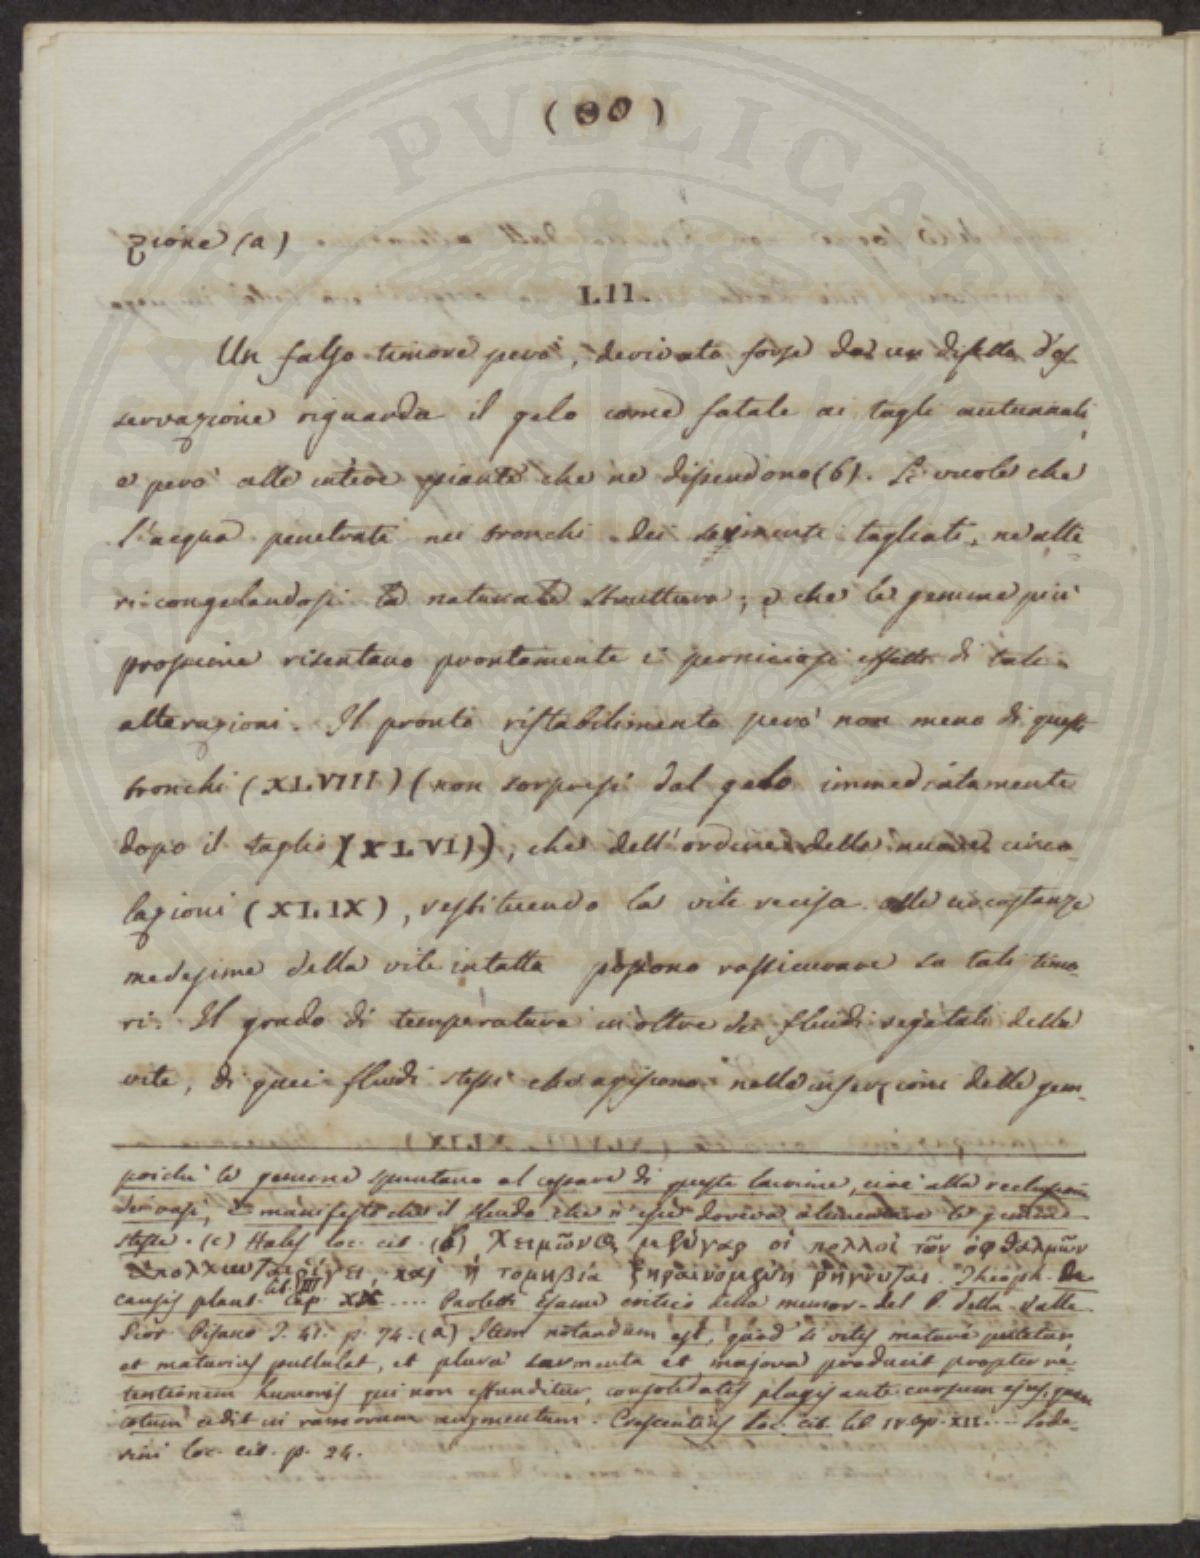 (80)
zione (a)
LII.
Un falso timore però, derivato forse da un difetto d'os-
servazione riguarda il gelo come fatale ai tagli autunnali,
e però alle intere piante che ne dipendono (b). Si vuole che
l'acqua penetrata nei tronchi dei sarmenti tagliati, ne alte-
ri congelandosi la naturale struttura; e che le gemme più
prossime risentano prontamente i perniciosi effetti di tale
alterazioni. Il pronto ristabilimento però non meno di questi
tronchi (XLVIII) (non sorpresi dal gelo immediatamente
dopo il taglio (XLVI)), che dell'ordine della nuova circo-
lazioni (XLIX), restituendo la vite recisa alle circostanze
medesime della vite intatta possono rassicurare su tali timo-
ri. Il grado di temperatura inoltre dei fluidi vegetali della
vite, di quei fluidi stessi che agiscono nelle inserzioni delle gem-
poichè le gemme spuntano al cessare di queste lacrime, cioè alla reclusione
dei vasi, è manifesto che il fluido che n'esce doveva alimentare le gemme
stesse. (c) Hales loc. cit. (b) Χειμῶνος μὲν γὰρ οἱ πολλοὶ τῶν ὀφθαλμῶν
καὶ ἡ τομὴ ῥήγνυται. Theoph. De
causis plant. lib. III cap. .... Paoletti Esame critico della memor. del P. della Valle
Gior. Pisano T. 41. p. 74. (a) Item notandum est, quod si vites mature putetur,
et maturius pullulat, et plura sarmenta et majora producit propter re-
tentionem humoris qui non effunditur, consolidatis plagis ante cursum ejus, quem
totum cedit in ramorum augmentum. Crescentius loc. cit. lib. IV. Cap. XII .... Sode-
rini loc. cit. p. 24.